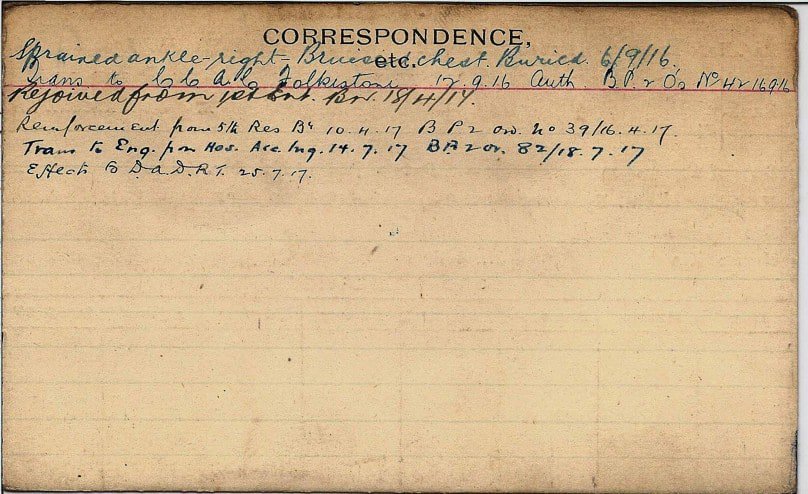 CORRESPONDENCE,
etc.
Sprained ankle-right- Bruised chest. Buried. 6/9/16.
Trans to C C A C Folkestone 12.9.16 Auth. B.P. 2 O's No 42 16916
Rejoined from Ent. Bn. 18/4/17.
Reinforcement from 5th Res Bn 10.4.17 B P 2 Or. No 39/16.4.17.
Trans to Eng. from Hos. Acc. Ing. 14.7.17 B.P. 2 or. 82/18.7.17
Effects to D.A.D.R.T. 25.7.17.